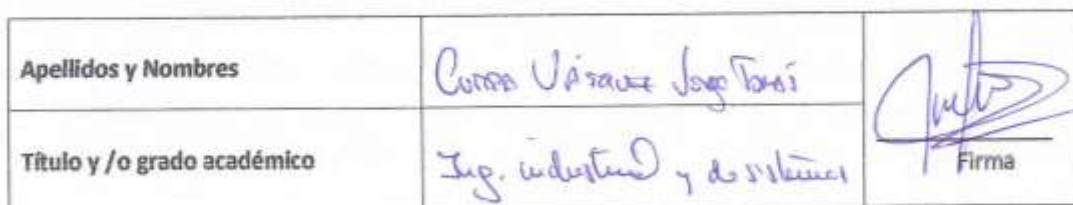 Apellidos y Nombres
Vásquez Jorge Tomás
Título y /o grado académico
Ing. industrial y de sistemas
Firma